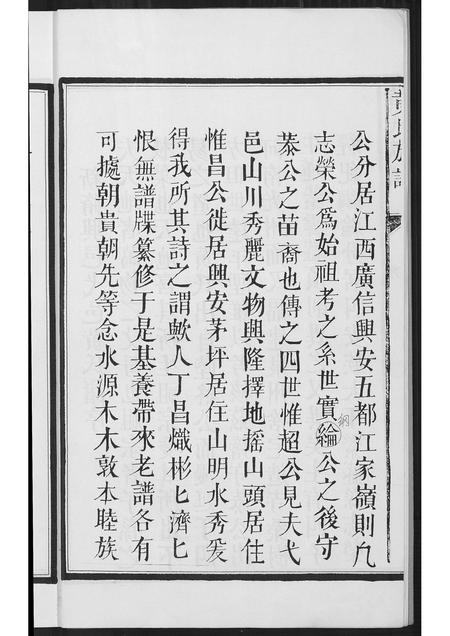 黄氏族譜
公分居江西廣信興安五都江家嶺則凣
志榮公爲始祖考之系世實綸公之後守
㤗公之苗裔也傳之四世惟超公見夫弋
邑山川秀麗文物興隆擇地摇山頭居住
惟昌公徙居興安茅坪居住山明水秀爰
得我所其詩之謂歟人丁昌熾彬匕濟匕
恨無譜牒纂修于是基養帶來老譜各有
可㨿朝貴朝先等念水源木木敦本睦族